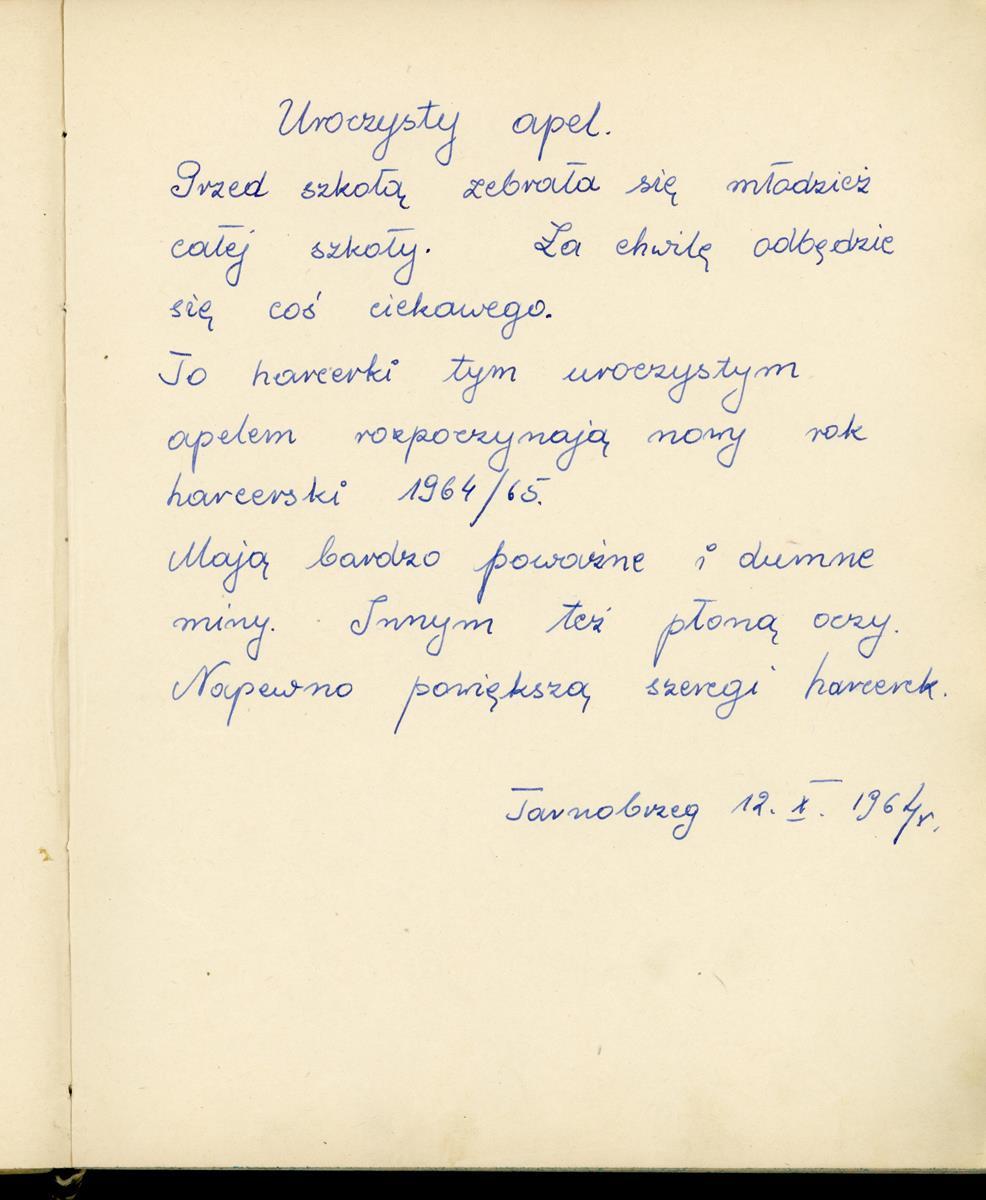 Uroczysty apel.
Przed szkołą zebrała się młodzież
całej szkoły. Za chwilę odbędzie
się coś ciekawego.
To harcerki tym uroczystym
apelem rozpoczynają nowy rok
harcerski 1964/65.
Mają bardzo poważne i dumne
miny. Innym też płoną oczy.
Napewno powiększą szeregi harcerek.
Tarnobrzeg 12. X. 1964r.